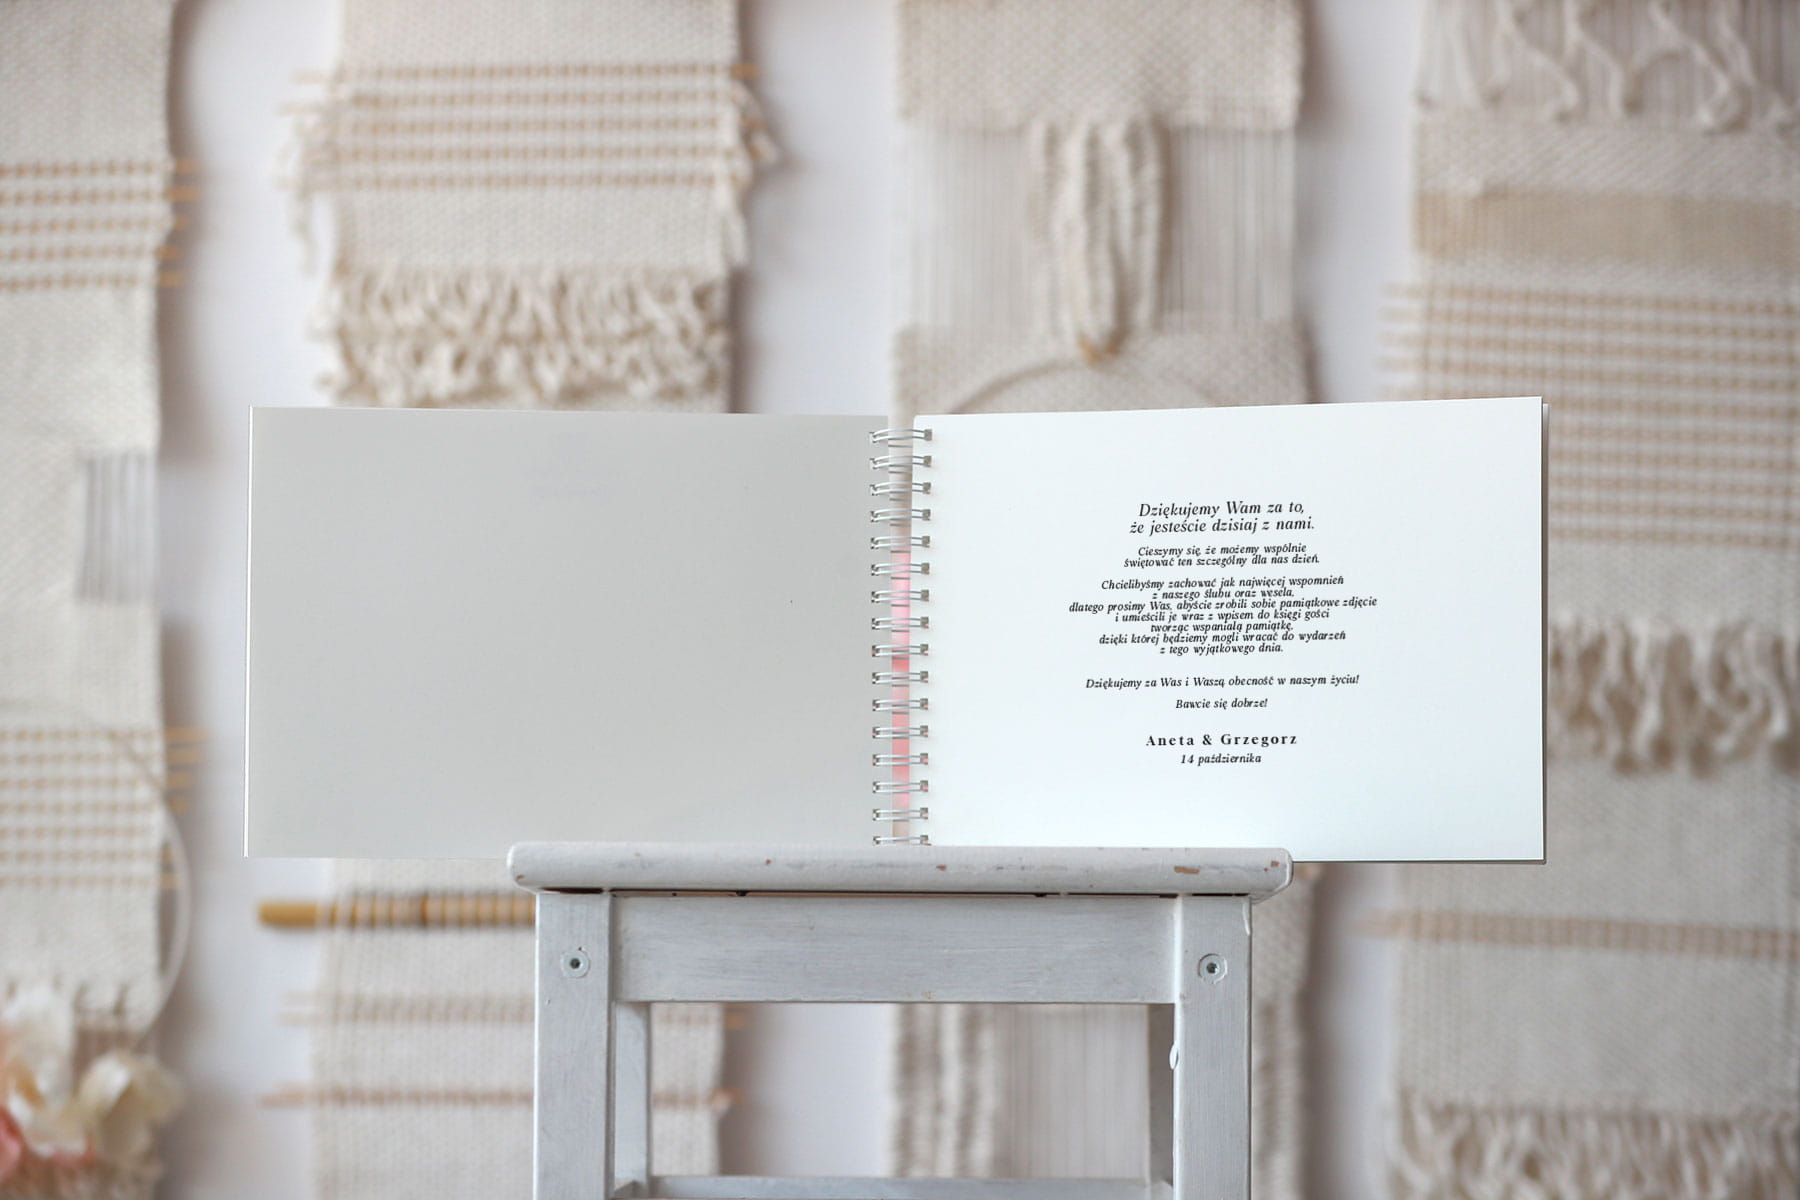 Dziękujemy Wam za to,
że jesteście dzisiaj z nami.
Cieszymy się, że możemy wspólnie
świętować ten szczególny dla nas dzień.
Chcielibyśmy zachować jak najwięcej wspomnień
z naszego ślubu oraz wesela,
dlatego prosimy Was, abyście zrobili sobie pamiątkowe zdjęcie
i umieścili je wraz z wpisem do księgi gości
tworząc wspaniałą pamiątkę,
dzięki której będziemy mogli wracać do wydarzeń
z tego wyjątkowego dnia.
Dziękujemy za Was i Waszą obecność w naszym życiu!
Bawcie się dobrze!
Aneta & Grzegorz
14 października